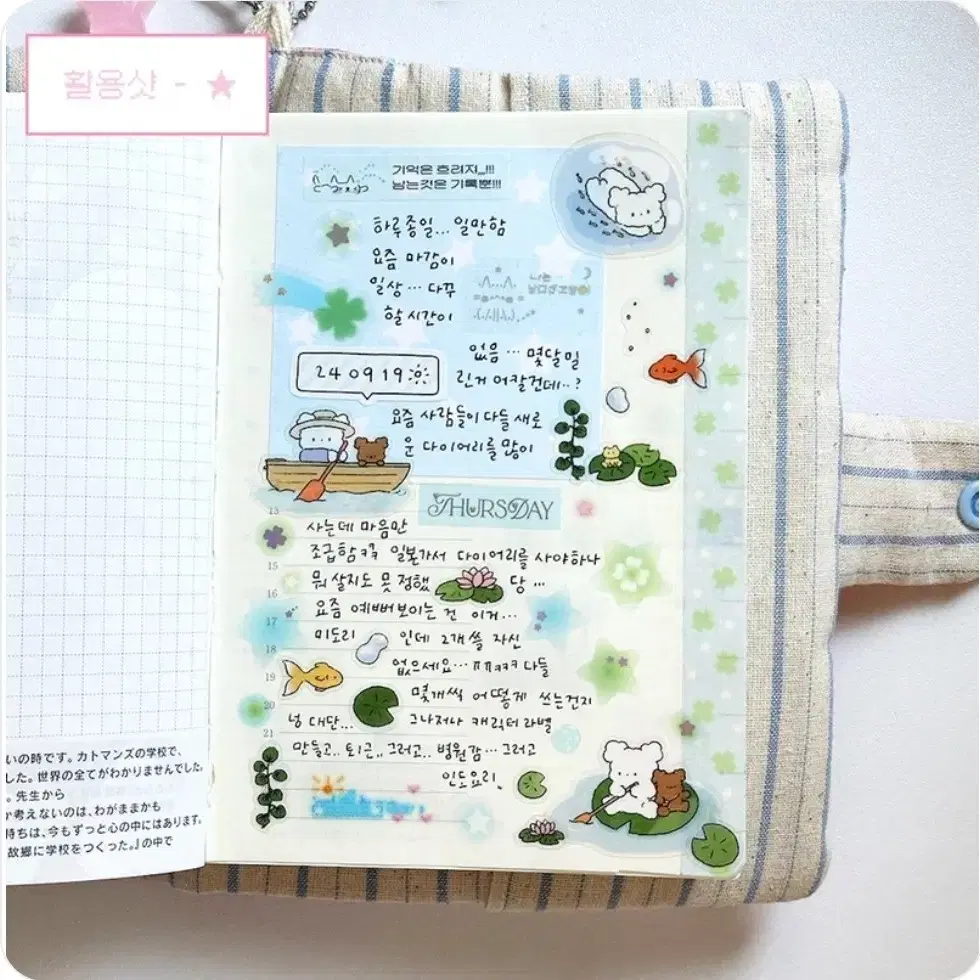 활용샷 - ★
기억은 흐리지,,,!!!
남는것은 기록뿐!!!
하루종일... 일만함
요즘 마감이
일상... 다꾸
할 시간이
없음... 몇달밀
린거 어칼건데..?
240919
요즘 사람들이 다들 새로
운 다이어리를 많이
THURSDAY
13
사는데 마음만
조급함ㅋㅋ 일본가서 다이어리를 사야하나
15
뭐 살지도 못 정했 당...
16
요즘 예뻐보이는 건 이거...
17
미도리 인데 2개 쓸 자신
18
없으세요... ㅠㅠㅋㅋㅋ 다들
19
몇개씩 어떻게 쓰는건지
20
넝 대단... 그나저나 캐릭터 라벨
21
만들고.. 토!근,, 그러고.. 병원감... 그러고
인도요리,,
いの時です。カトマンズの学校で、
した。世界の全てがわかりませんでした。
。先生から
か考えないのは、わがままかも
持ちは、今もずっと心の中にはあります。
故郷に学校をつくった。』の中で